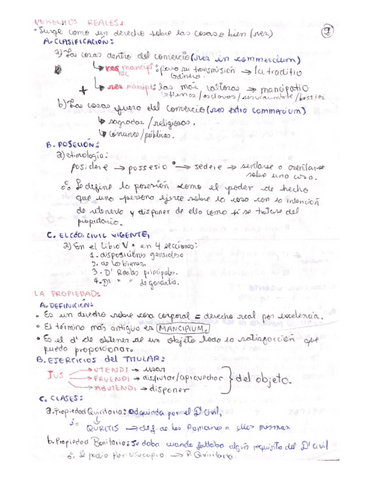 DERECHOS REALES:
• Surge como un derecho sobre las cosas o bien (res)
A. CLASIFICACION:
a) Las cosas dentro del comercio (res in commercium)
→ res mancipi: para su transmisión → la traditio
NEC
→ res mancipi: las más valiosas → mancipatio
b) Las cosas fuera del comercio (res extra commercium)
↳ sagradas / religiosas.
↳ comunes/públicas.
B. POSESIÓN:
a) etimología:
possidere → possesio → sedere → sentarse o
sobre una cosa.
Se define la posesión como el poder de hecho
que una persona ejerce sobre la cosa con la intención
de retenerla y disponer de ella como si se tratara del
propietario.
C. EL CÓD. CIVIL VIGENTE:
a) En el libro V en 4 secciones:
1. disposiciones generales
2. de los bienes.
3. Dº Reales principales.
4. " " de garantía.
LA PROPIEDAD
A. DEFINICION:
• Es un derecho sobre cosa corporal = derecho real por excelencia.
• El término más antiguo es MANCIPIUM.
• Es el dº de obtener de un objeto toda la satisfacción que
puede proporcionar.
B. EJERCICIOS DEL TITULAR:
IUS → UTENDI → usar
→ FRUENDI → disfrutar/aprovechar } del objeto.
→ ABUTENDI → disponer
C. CLASES:
a. Propiedad Quiritaria: adquirida por el Dº Civil,
QUIRITIS → de los Romanos
b. Propiedad Bonitaria: Se daba cuando faltaba algún requisito del Dº Civil
usucapio → P. Quiritaria.